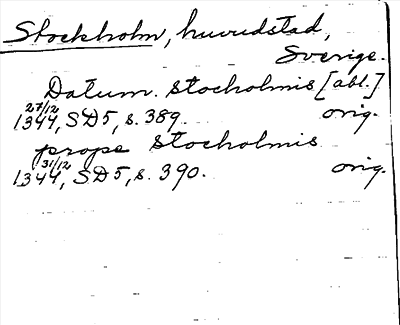 Stockholm, huvudstad,
Sverige.
Datum. stocholmis [abl.]
27/12 1344, SD5, s. 389. orig.
prope stocholmis
31/12 1344, SD5, s. 390. orig.